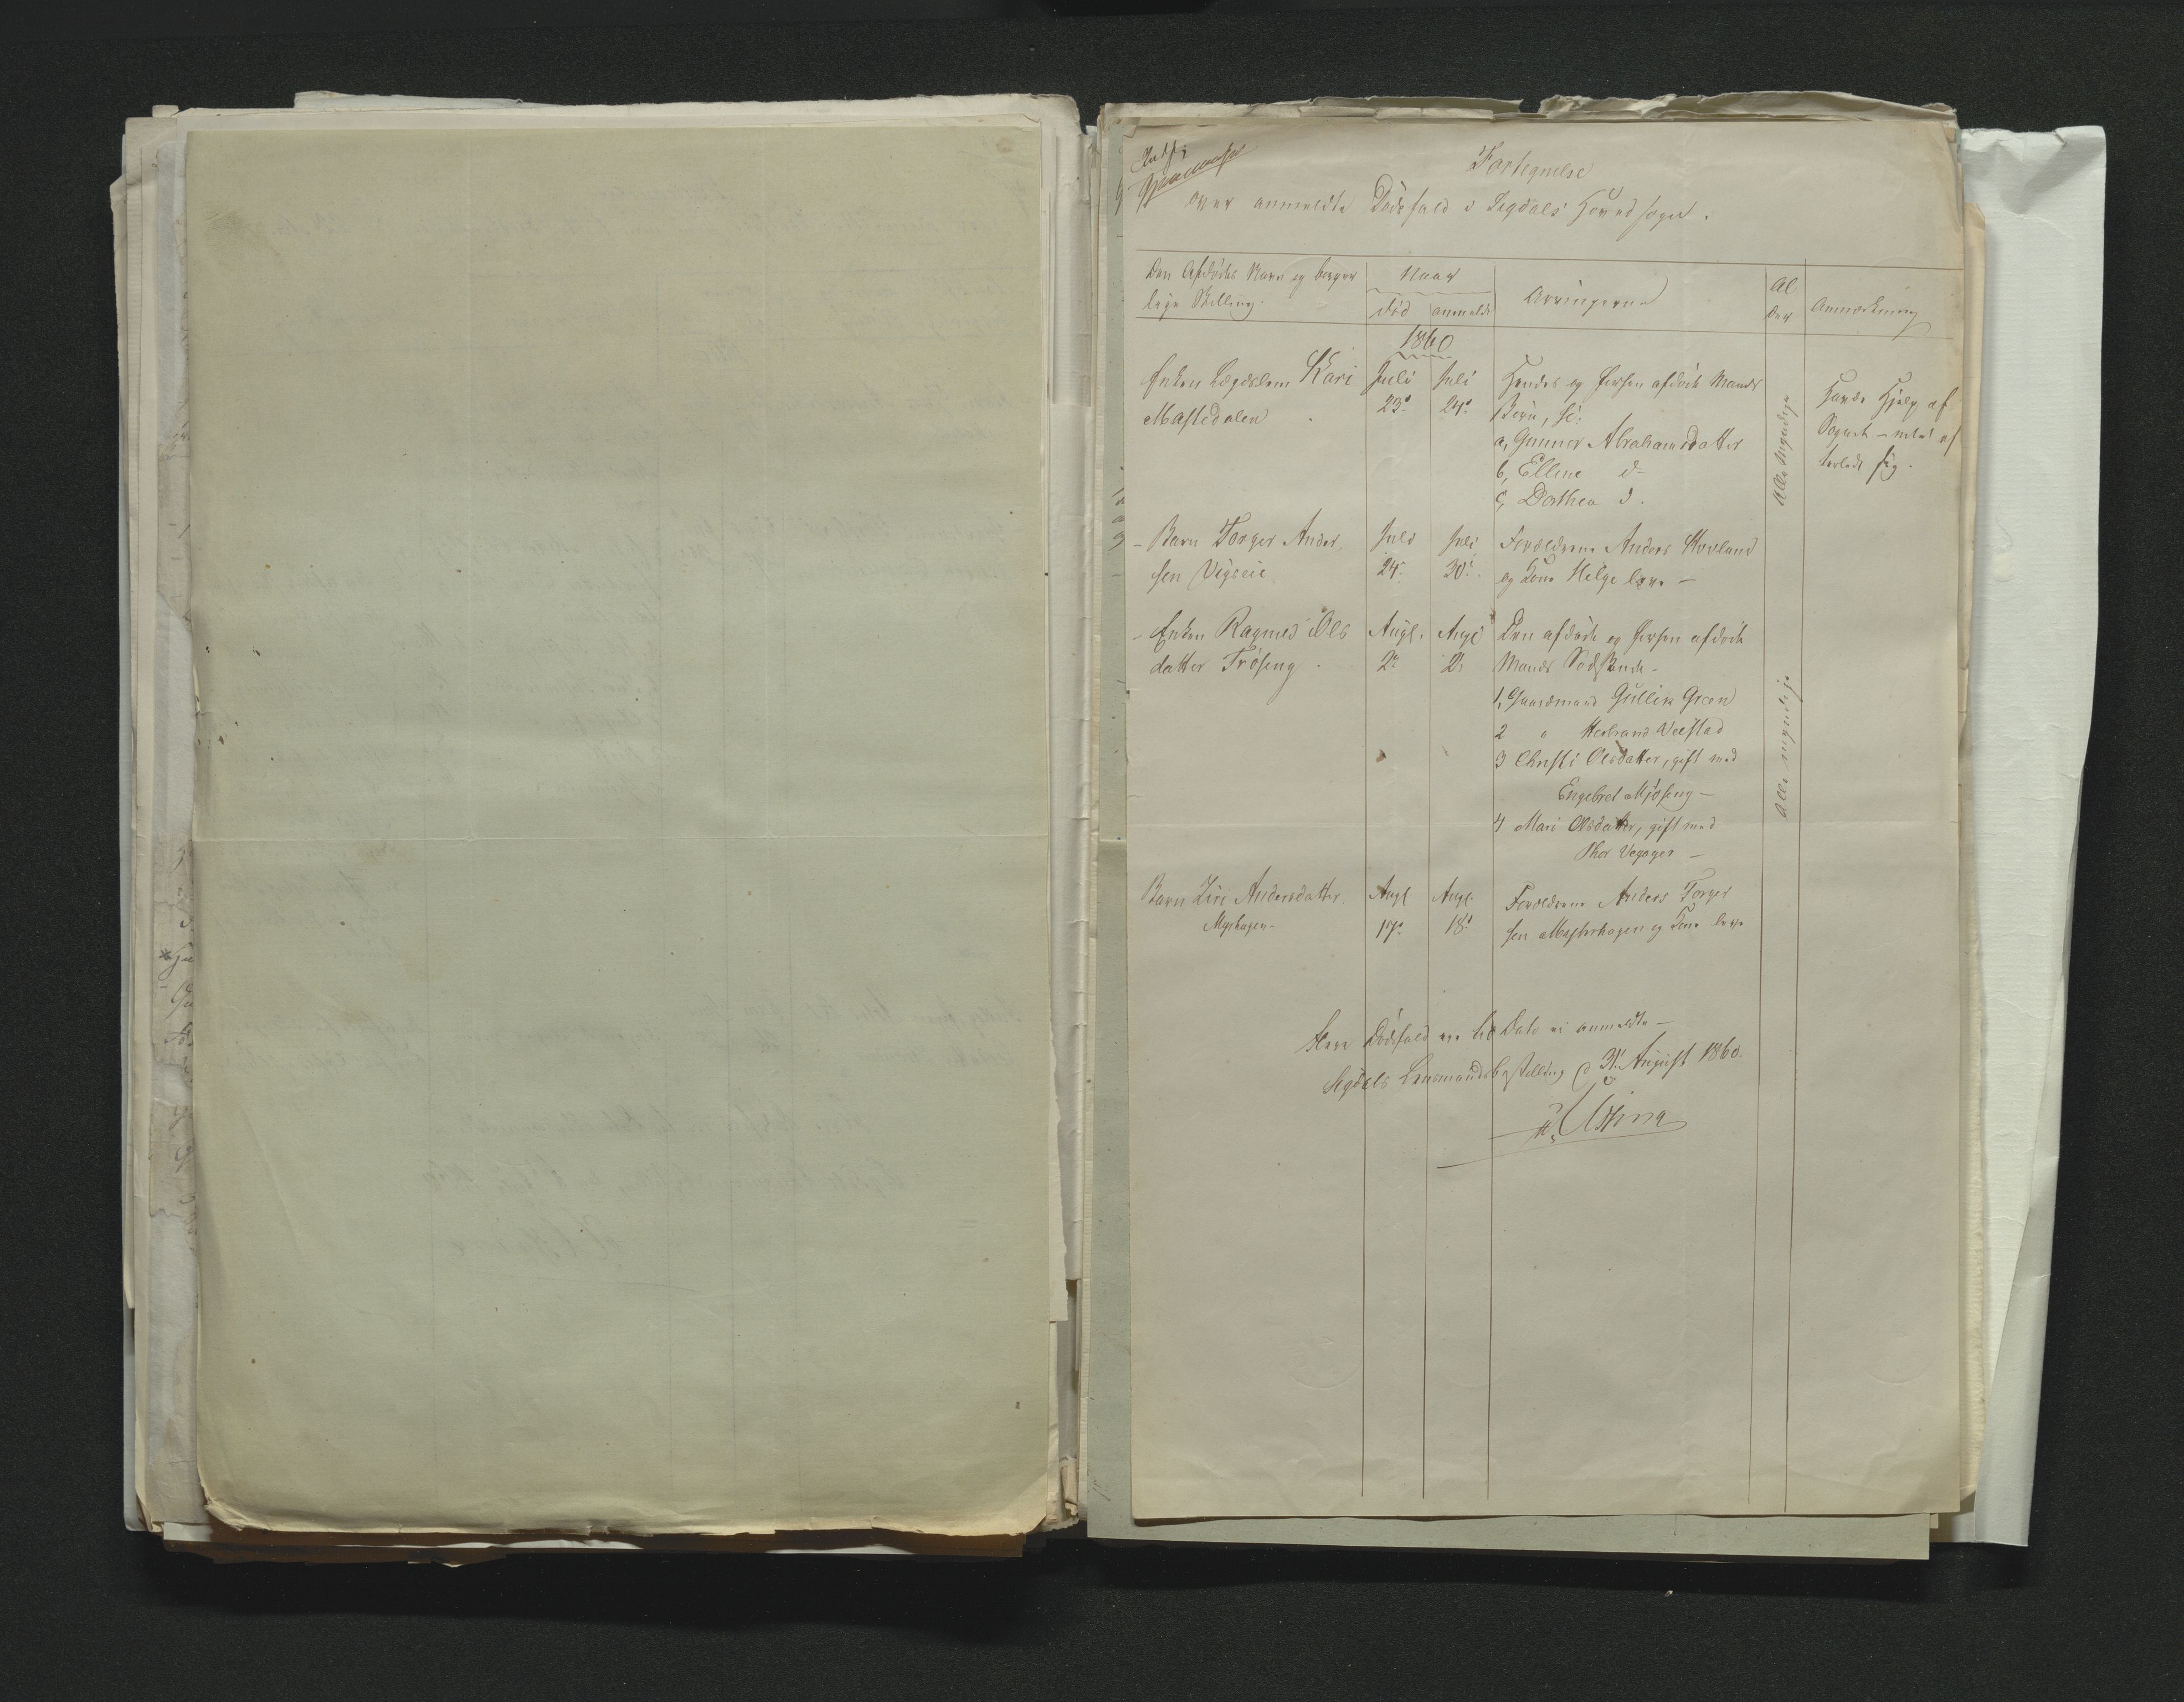 Fortegnelse
over anmeldte Dødsfald i Sigdals Hovedsogn.
Den Afdødes Navn og borger
lige Stilling.
Naar
død anmeldt
Arvingerne
Al
der
Anmærkning
1860
Enken Lægdslem Kari
Mastedalen
Juli
23.
Juli
24.
Hendes og forhen afdøde Mands
Børn, se:
a, Gunner Abrahamsdatter
b, Elline d
c, Dorthea d.
Alle myndige
Havde Hjelp af
Sognet – intet ef
terladt sig.
- Barn Torger Ander
sen Vegseie
Juli
24.
Juli
30.
Forældrene Anders Hovland
og Kone Helge leve –
- Enken Ragnild Ols
datter Frøseng
Augs.
2.
Augs
2.
Den afdøde og forhen afdøde
Mands Sødskende –
1, Gaardmand Gullik Green
2 " Herbrand Veestad
3 Christi Olsdatter, gift med
Engebret Mjøseng –
4 Mari Olsdatter, gift med
Thor Vegager –
Alle myndige
Barn Siri Andersdatter
Myrhagen –
Augs
17.
Augs.
18.
Forældrene Anders Torger
sen Myhrhagen og Kone leve
Flere Dødsfald ere til Dato ei anmeldte –
Sigdals Lensmandsbestilling d 31. August 1860.